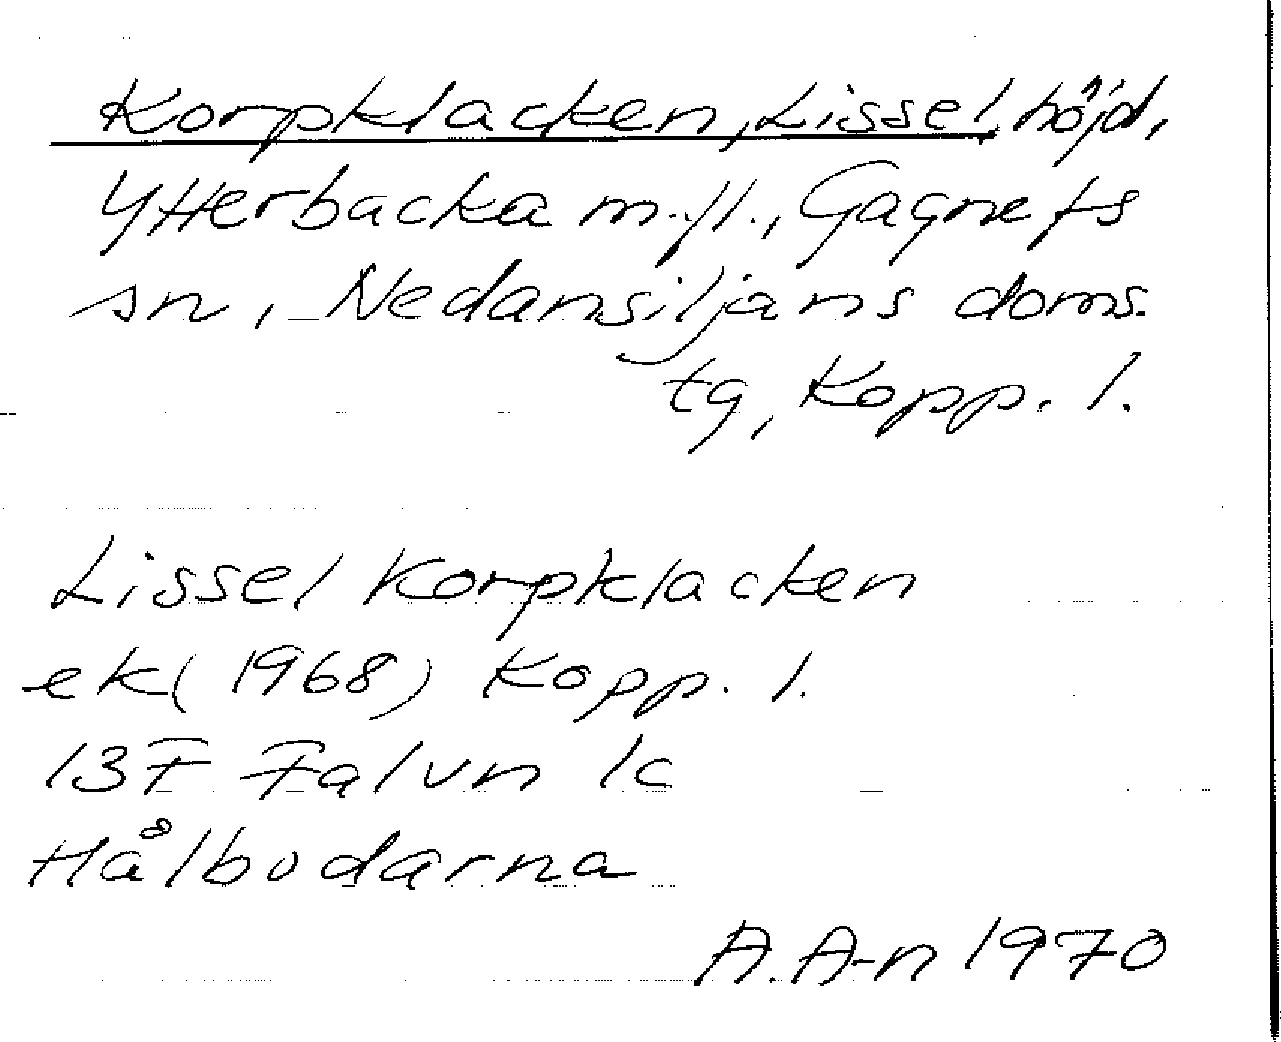 Korpklacken, Lissel, höjd,
Ytterbacka m.fl., Gagnefs
sn, Nedansiljans doms.
tg, Kopp. l.
Lissel Korpklacken
ek (1968) Kopp. l.
13F Falun 1c
Hålbodarna
A.A-n 1970